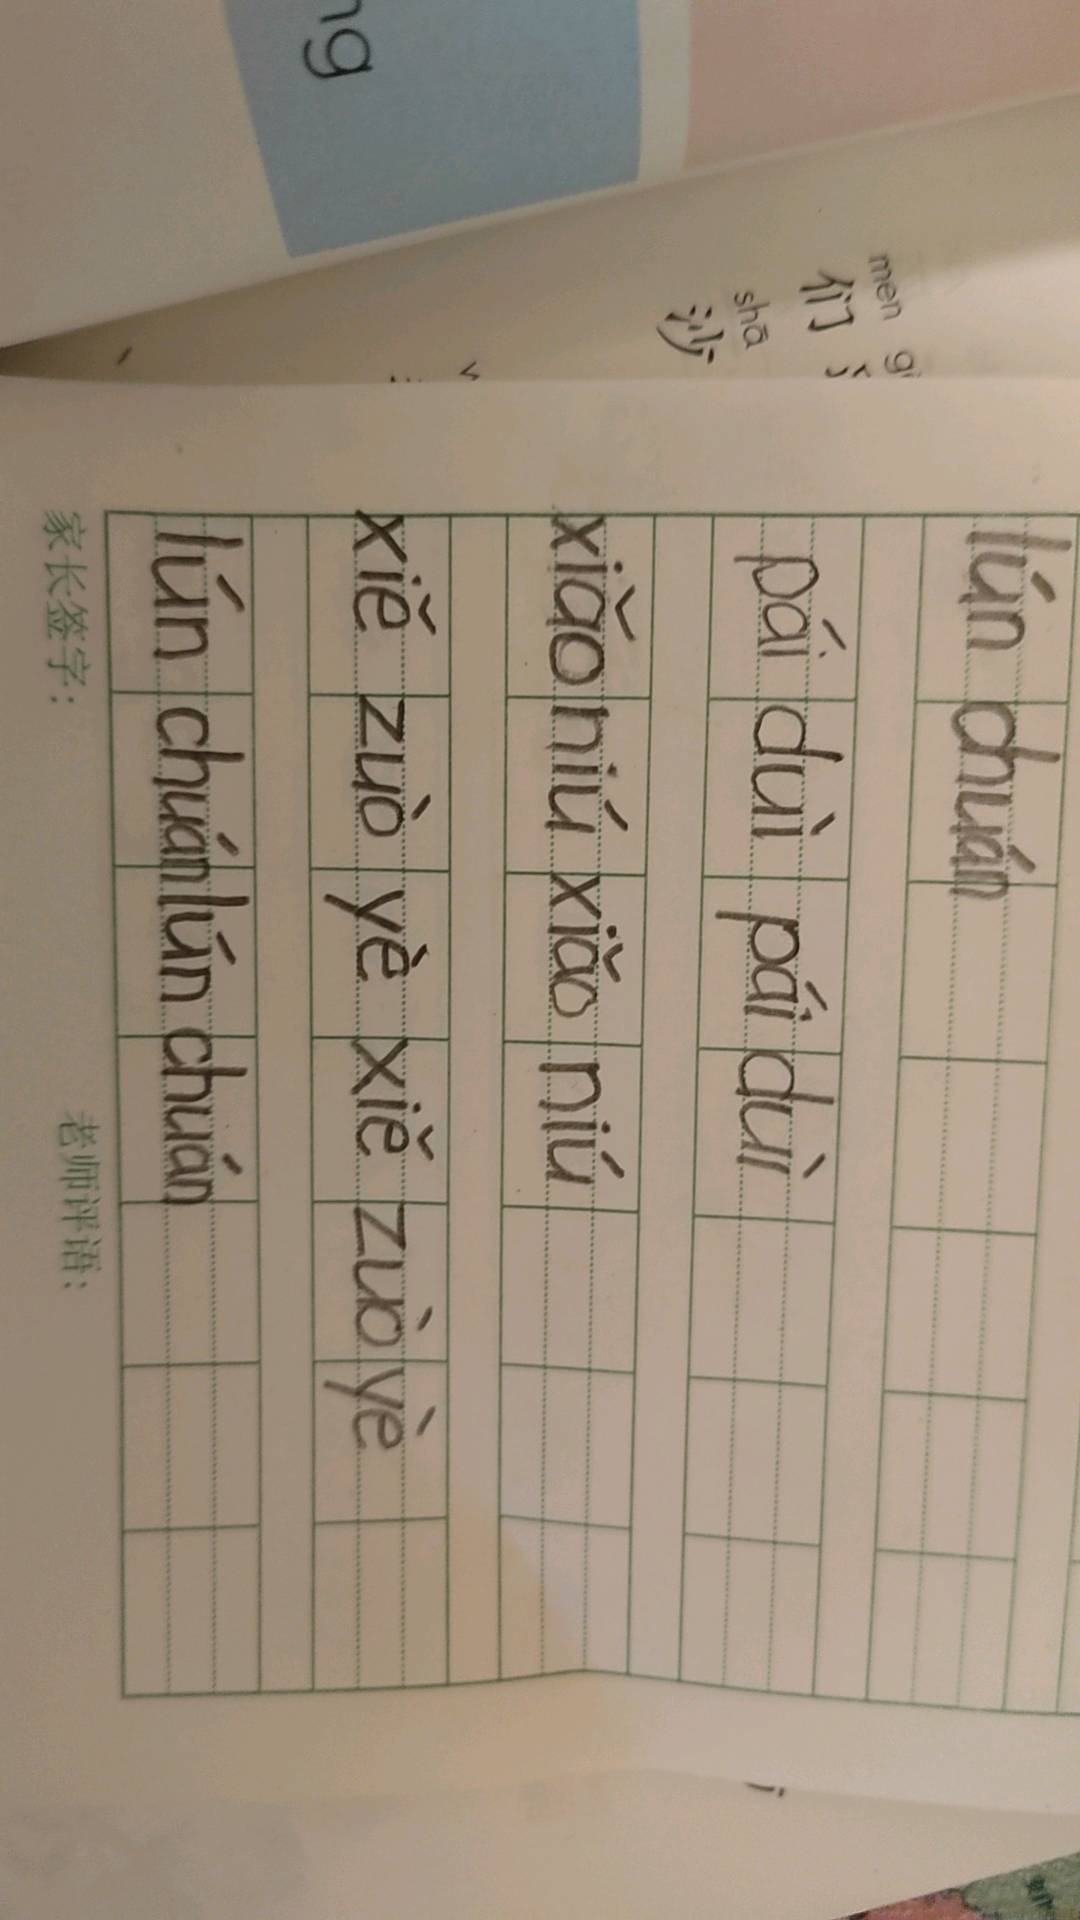 ng
men
们
shā
沙
lún chuán
pái duì pái duì
xiǎo niú xiǎo niú
xiě zuò yè xiě zuò yè
lún chuán lún chuán
家长签字： 老师评语：